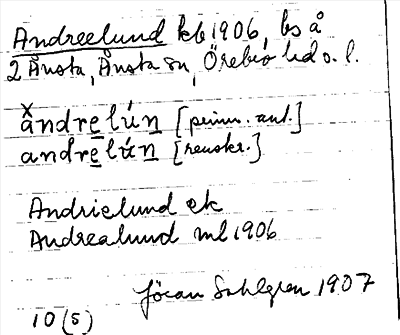 Andreelund kb 1906, bs å
2 Ånsta, Ånsta sn, Örebro hd o. l.
x
ändrelún [prim. ant.]
andrelún [renskr.]
Andrielund ek
Andrealund ml 1906
Jöran Sahlgren 1907
10 (5)